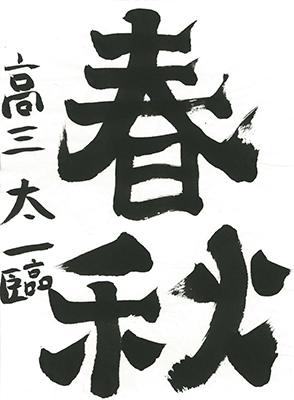 春秋
高三 太一臨